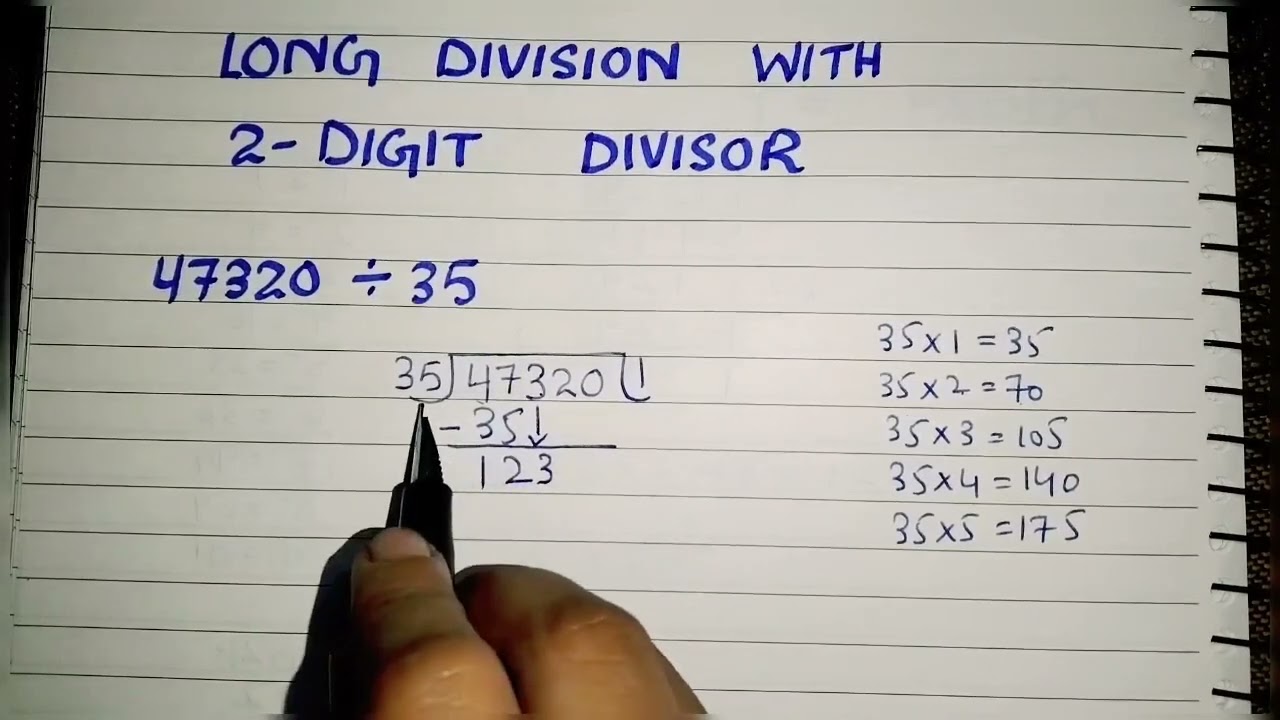 LONG DIVISION WITH
2-DIGIT DIVISOR
47320 ÷ 35
35)47320(1
-35↓
123
35×1=35
35×2=70
35×3=105
35×4=140
35×5=175